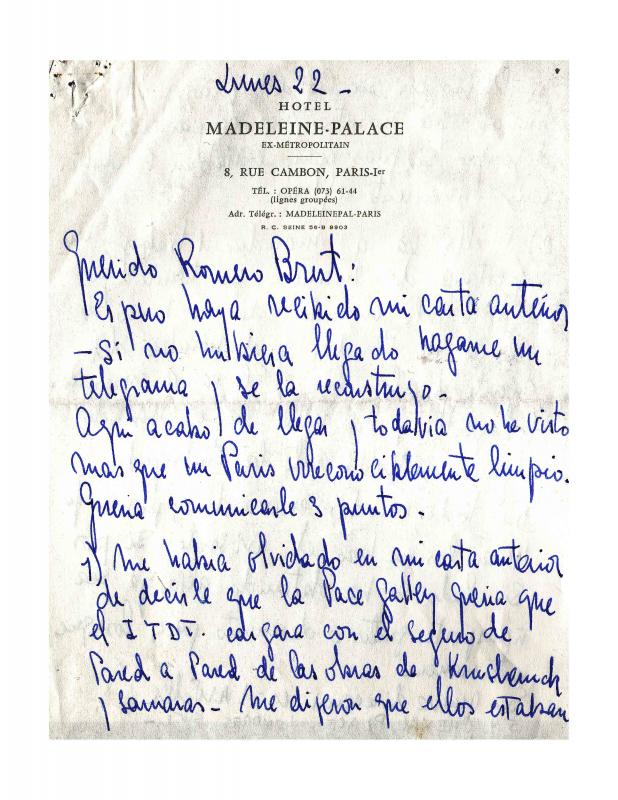 Lunes 22 -
HOTEL
MADELEINE-PALACE
EX-MÉTROPOLITAIN
8, RUE CAMBON, PARIS-Ier
TÉL. : OPÉRA (073) 61-44
(lignes groupées)
Adr. Télégr. : MADELEINEPAL-PARIS
R. C. SEINE 56-B 9903
Querido Romero Brest:
Espero haya recibido mi carta anterior
- Si no hubiera llegado hagame un
telegrama y se la reconstruyo.
Aqui acabo de llegar y todavia no he visto
mas que un Paris irreconociblemente limpio.
Queria comunicarle 3 puntos.
1) Me habia olvidado en mi carta anterior
de decirle que la Pace Gallery queria que
el ITDT. cargara con el seguro de
Pared a Pared de las obras de
y Samaras - Me dijeron que ellos estaban